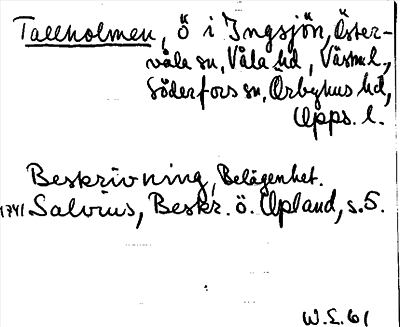 Tallholmen, ö i Ingsjön, Öster-
våla sn, Våla hd, Västml,
Söderfors sn, Örbyhus hd,
Upps. l.
Beskrivning, Belägenhet.
1741 Salvius, Beskr. ö. Upland, s. 5.
W.L. 61